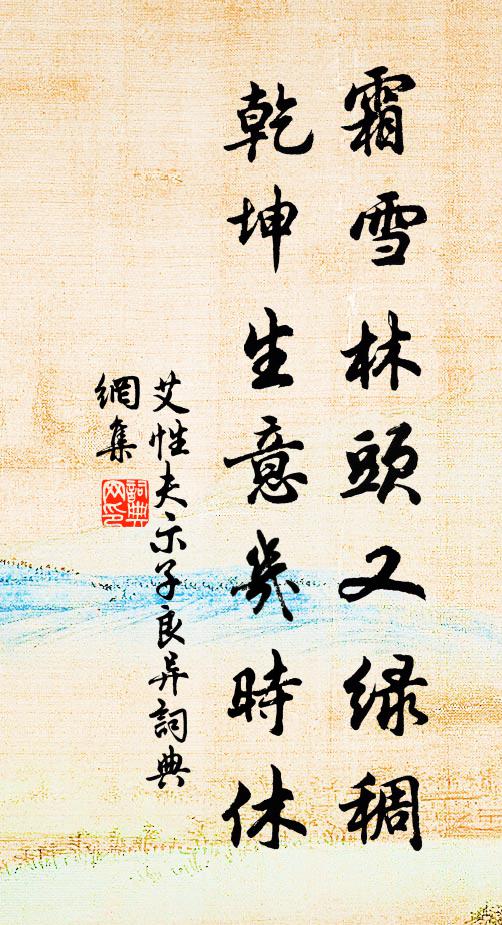 霜雪林頭又绿稠
乾坤生意幾時休
艾性夫示子良异詞典
網集
詞典
网印